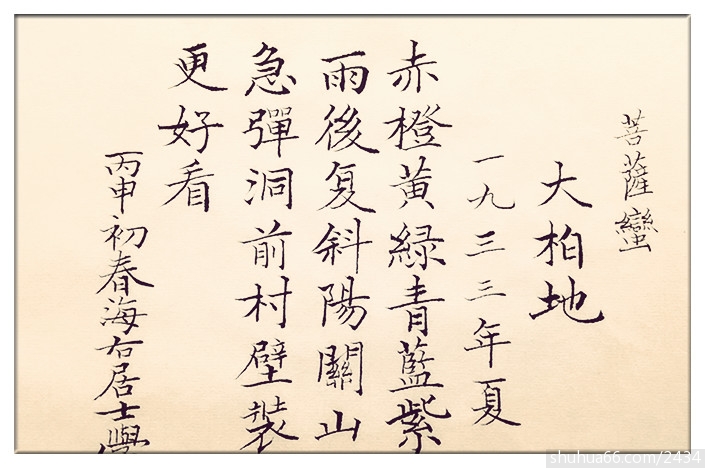 菩薩蠻
大柏地
一九三三年夏
赤橙黄綠青藍紫
雨後复斜陽關山
急彈洞前村壁裝
更好看
丙申初春海右居士學
shuhua66.com/2434